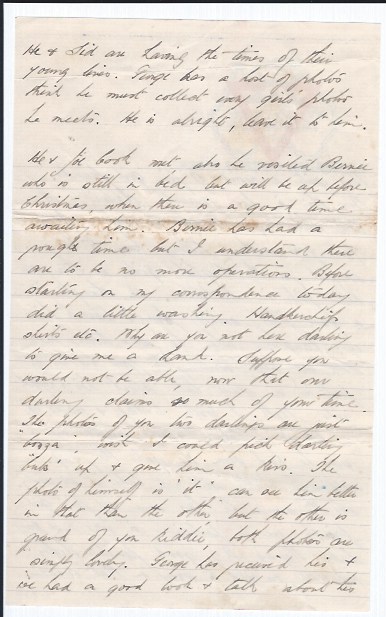 He & Sid are having the times of their
young lives. George has a host of photos
think he must collect every girls photo
he meets. He is alright, leave it to him.
He & Joe Cook met also he visited Bernie
who is still in bed but will be up before
Christmas, when there is a good time
awaiting him. Bernie has had a
rough time but I understand there
are to be no more operations. Before
starting on my correspondence today
did a little washing. Handkerchiefs
shirts etc. Why are you not here darling
to give me a hand. Suppose you
would not be able, now that our
darling claims so much of your time.
The photos of you two darlings are just
"bonza", wish I could pick darling
"bubs" up & give him a kiss. The
photo of himself is "it" can see him better
in that than the other but the other is
grand of you kiddie, both photos are
simply lovely. George has received his &
we had a good look & talk about his